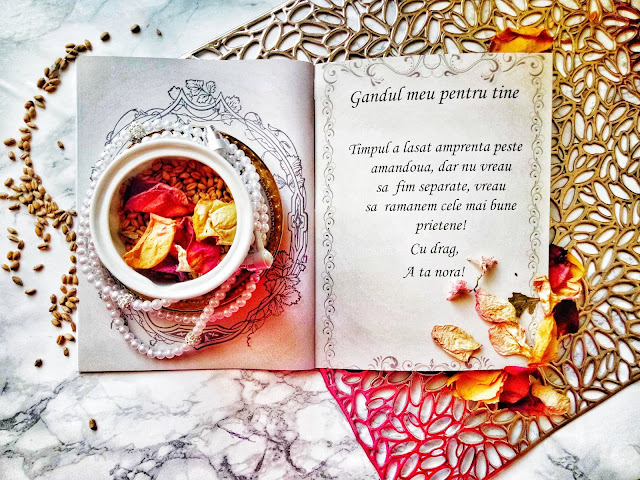 Gandul meu pentru tine
Timpul a lasat amprenta peste
amandoua, dar nu vreau
sa fim separate, vreau
sa ramanem cele mai bune
prietene!
Cu drag,
A ta nora!